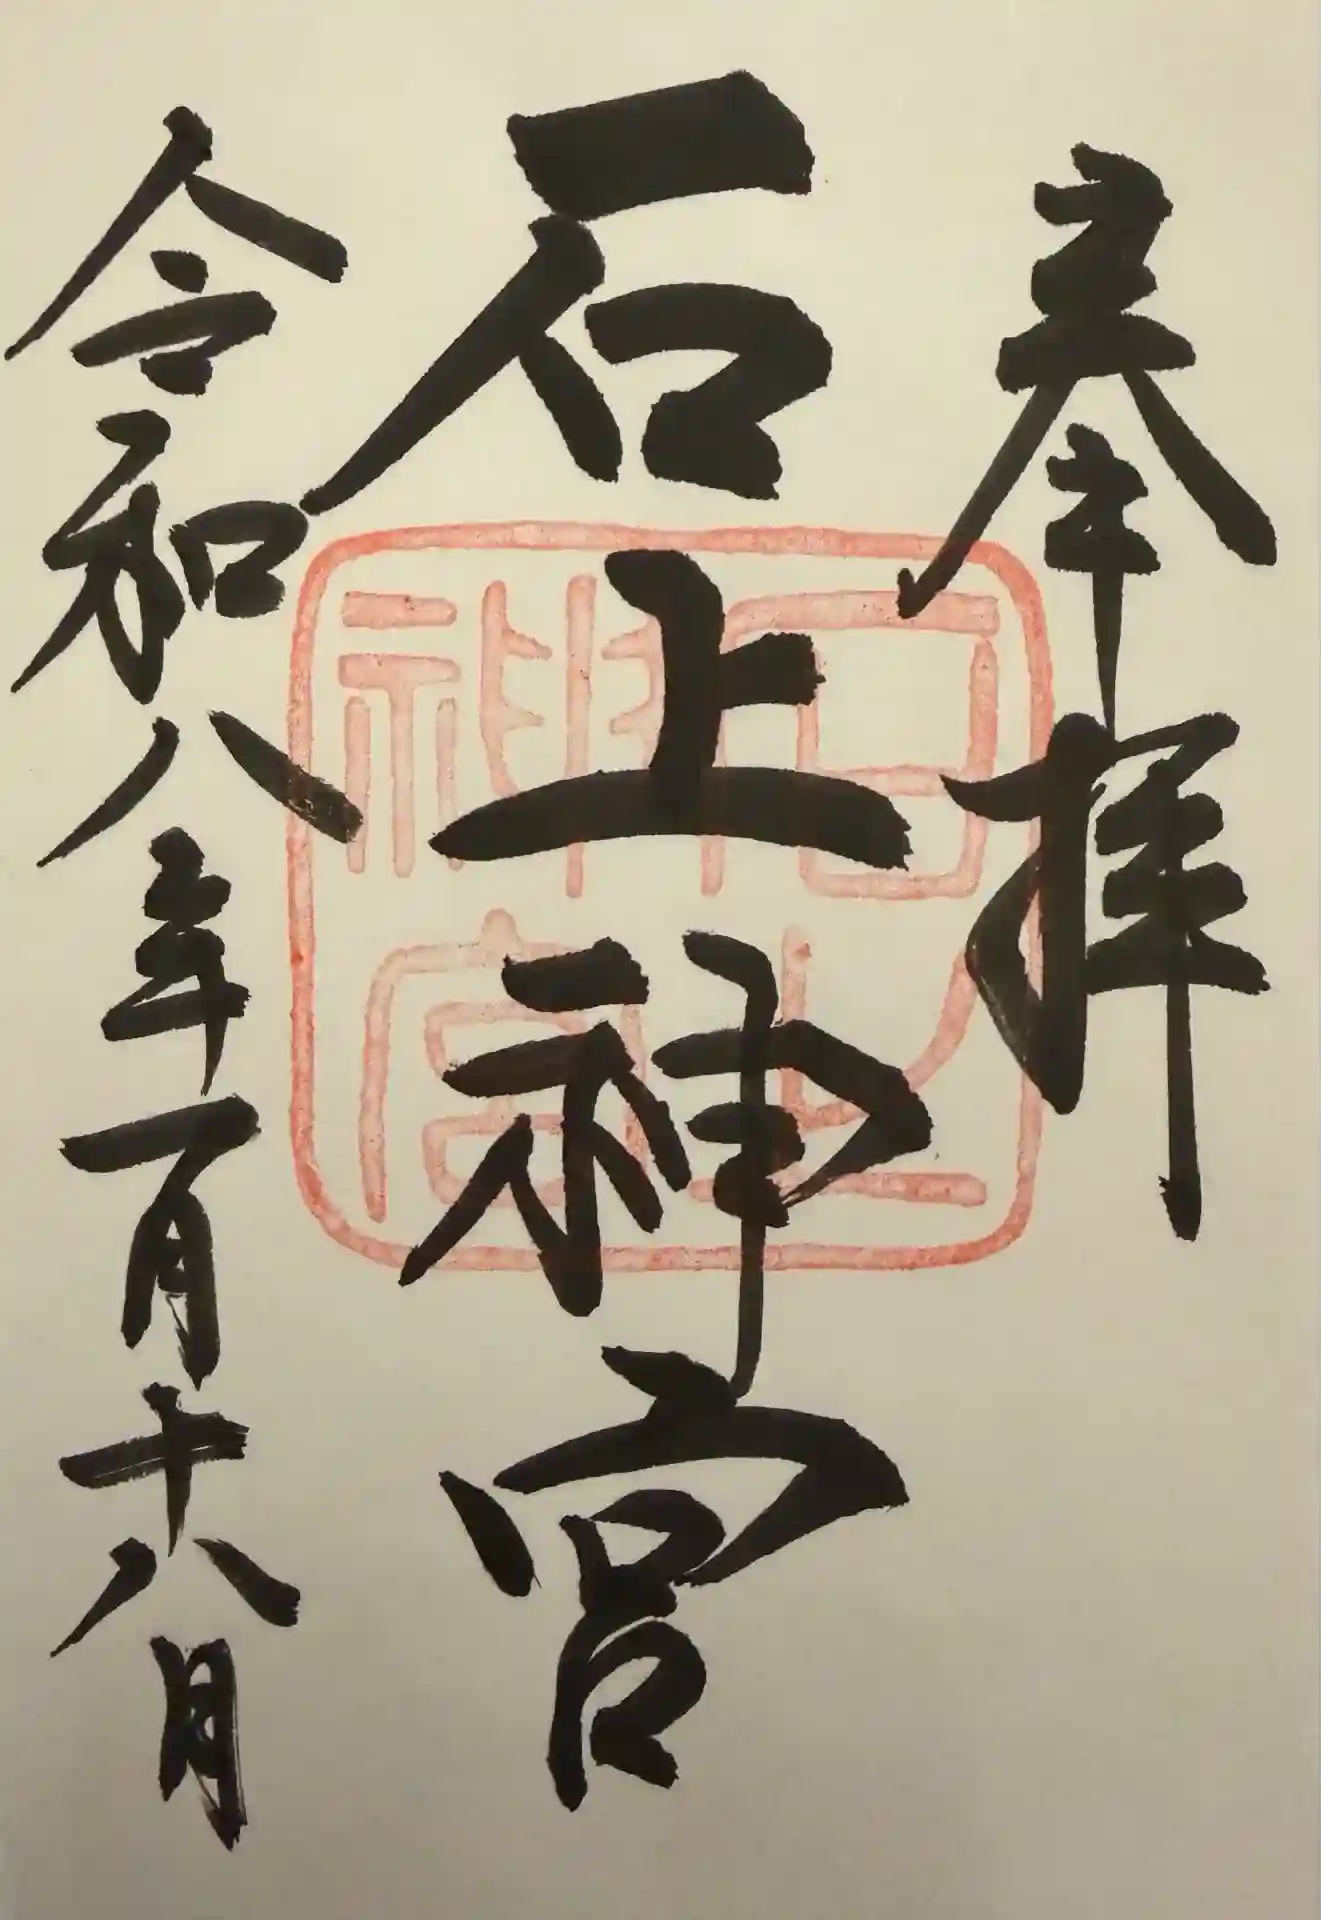 奉拝
石上神宮
石上
神宮
令和八年一月十八日